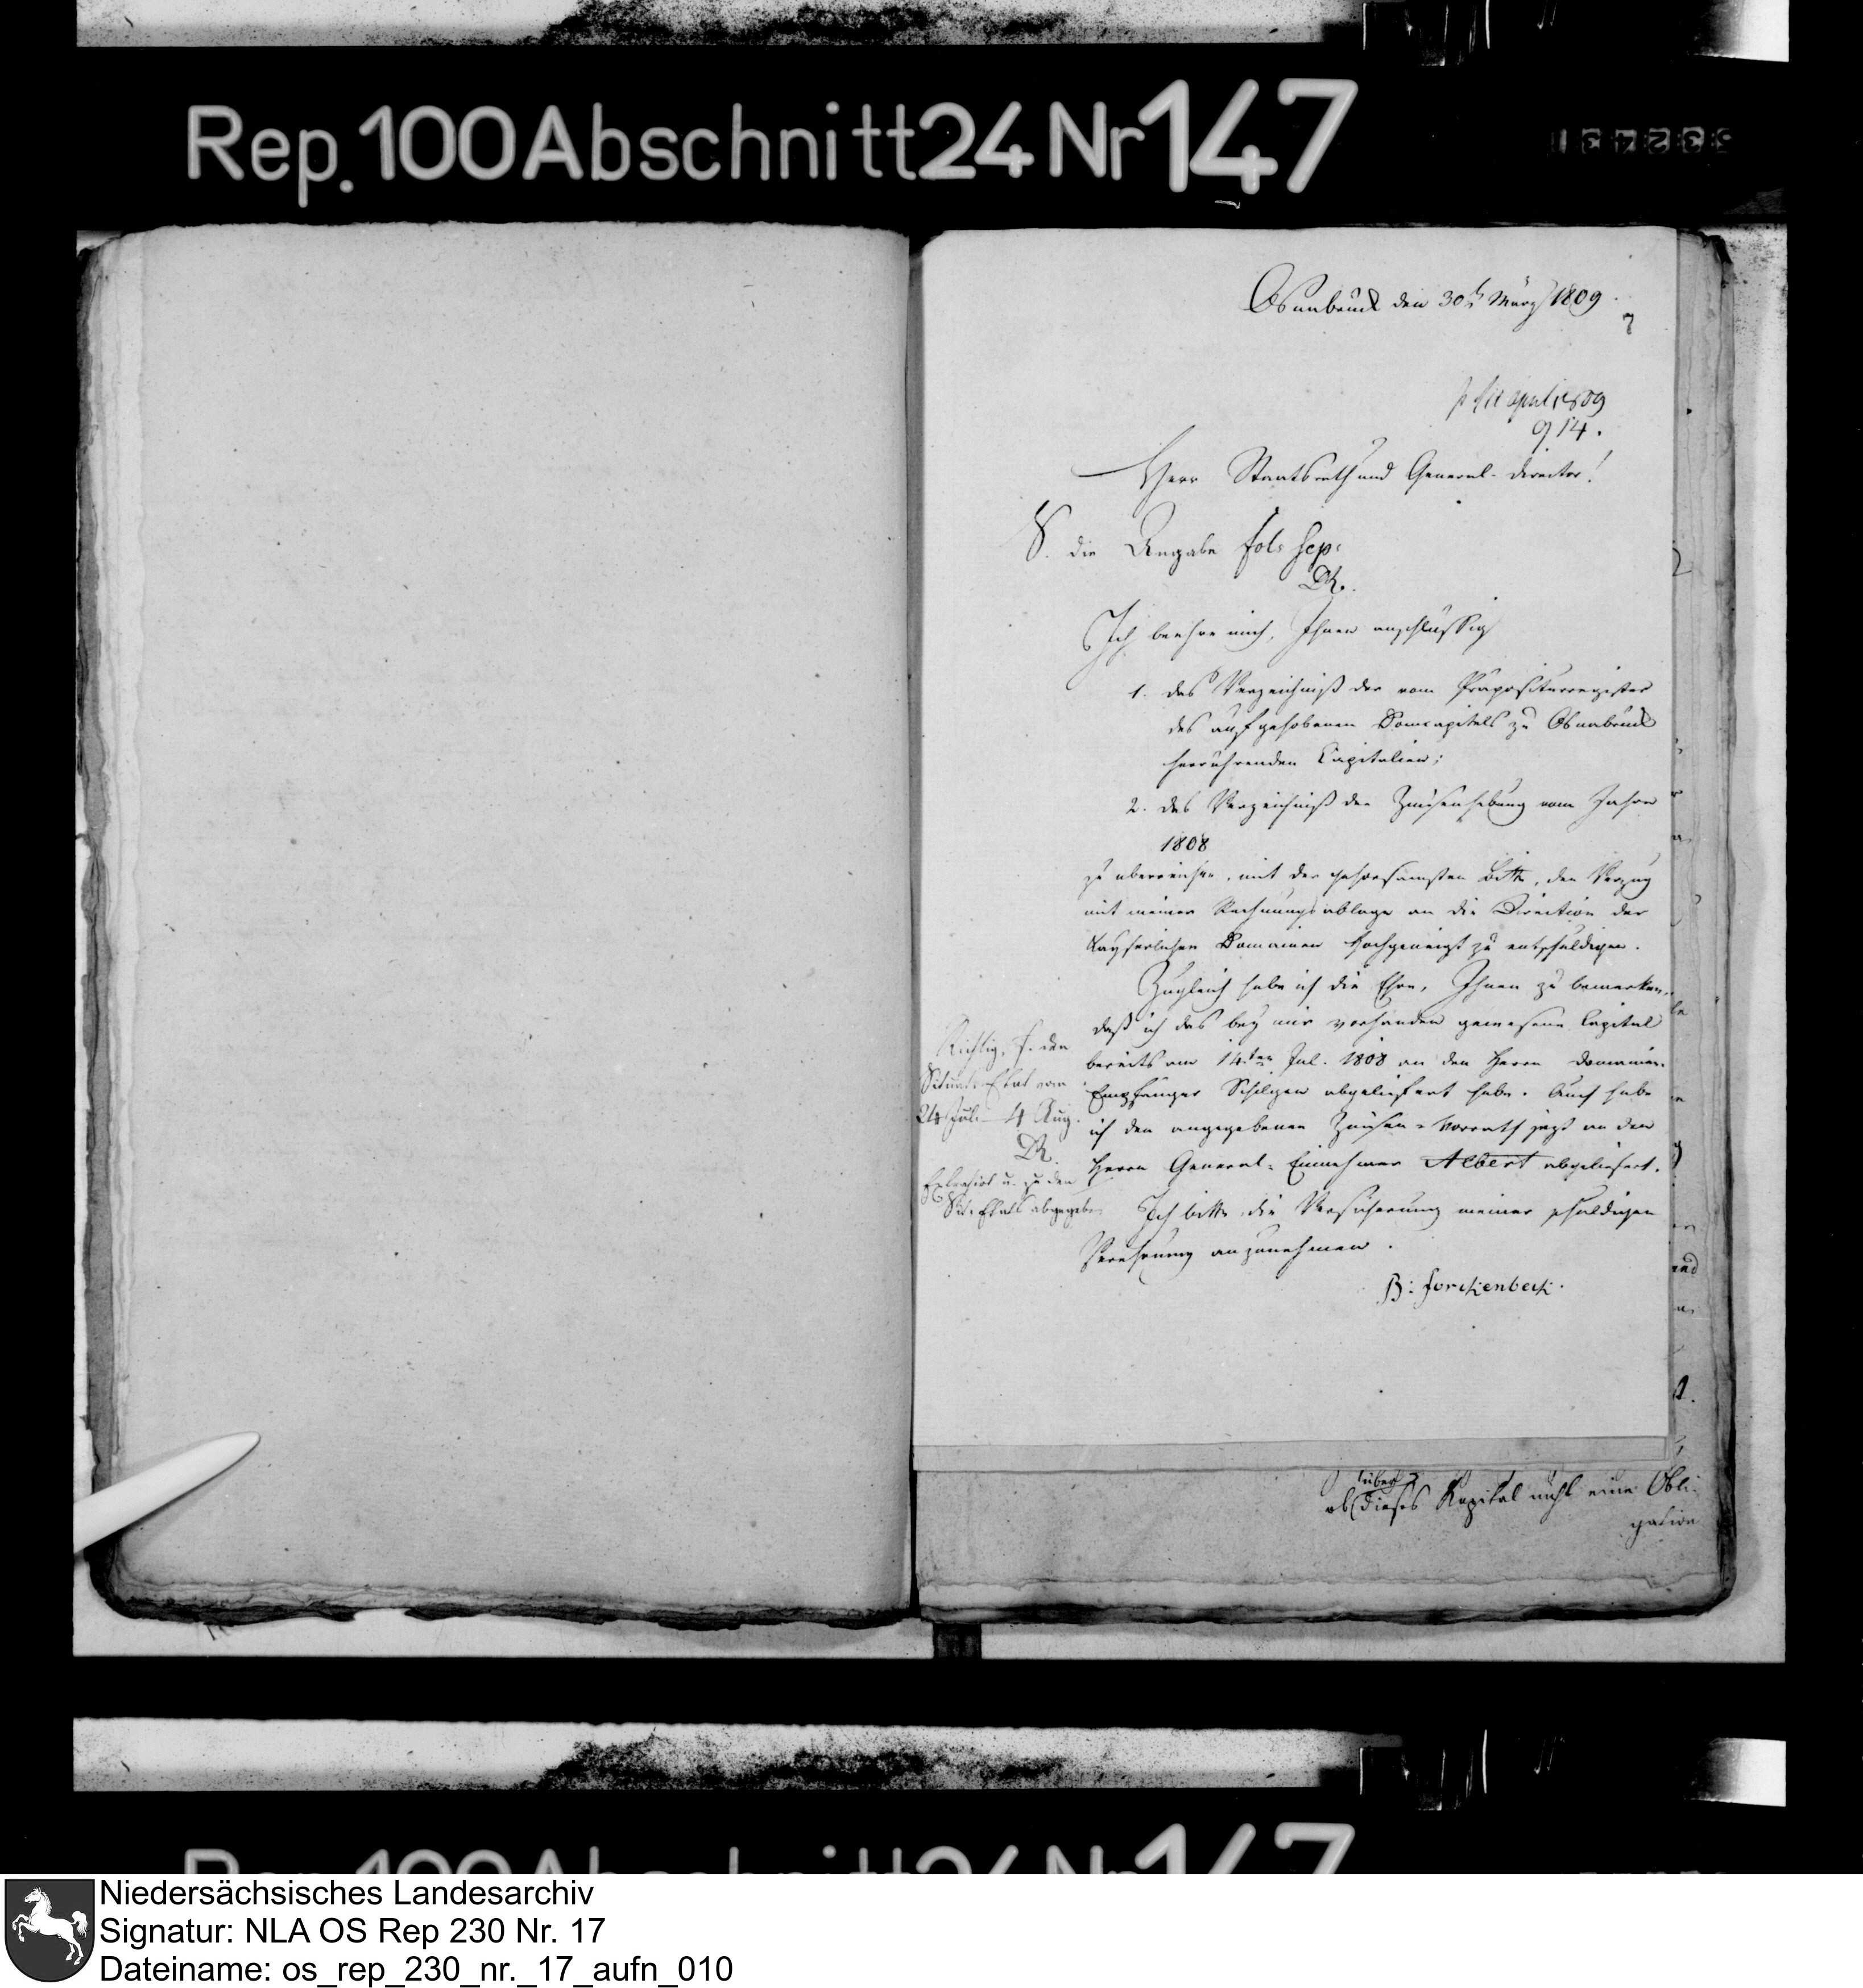 Rep. 100 Abschnitt 24 Nr 147
Osnabrück den 30t März 1809
7
april 1809
914.
Herr Staatsrath und General-Director!
S. die Angabe fol: sep:
Ich beehre mich, Ihnen anschlüssig
1. das Verzeichniß der vom Präpositurregister
des aufgehobenen Domcapitels zu Osnabrück
herrührenden Capitalien;
2. das Verzeichniß der Zinsenhebung vom Jahre
1808
zu überreichen, mit der gehorsamsten Bitte, den Verzug
mit meiner Rechnungsablage an die Direction der
Kayserlichen Domainen hochgeneigt zu entschuldigen.
Zugleich habe ich die Ehre, Ihnen zu bemerken,
daß ich das bey mir vorhanden gewesene Capital
bereits am 14ten Jul. 1808 an den Herrn Domainen-
Empfänger Schilgen abgeliefert habe. Auch habe
ich den angegebenen Zinsen-Vorrath jezt an den
Herrn General-Einnehmer Albert abgeliefert.
Ich bitte die Versicherung meiner schuldigen
Verehrung anzunehmen.
B: Forckenbeck.
Richtig, s. den
Situat: Etat vom
24 Juli - 4 Aug.
u. zu den
Sit: Etats abgegeben
ob über dieses Kapital nicht eine Obli-
gation
Niedersächsisches Landesarchiv
Signatur: NLA OS Rep 230 Nr. 17
Dateiname: os_rep_230_nr._17_aufn_010